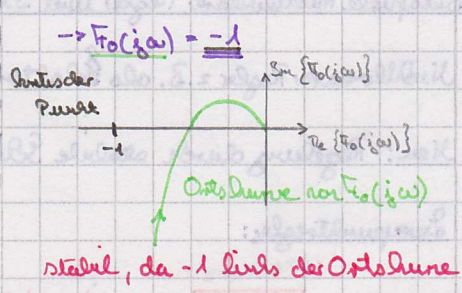 → F₀(jω) = -1
Im {F₀(jω)}
kritischer
Punkt
-1
Re {F₀(jω)}
Ortskurve von F₀(jω)
stabil, da -1 links der Ortskurve